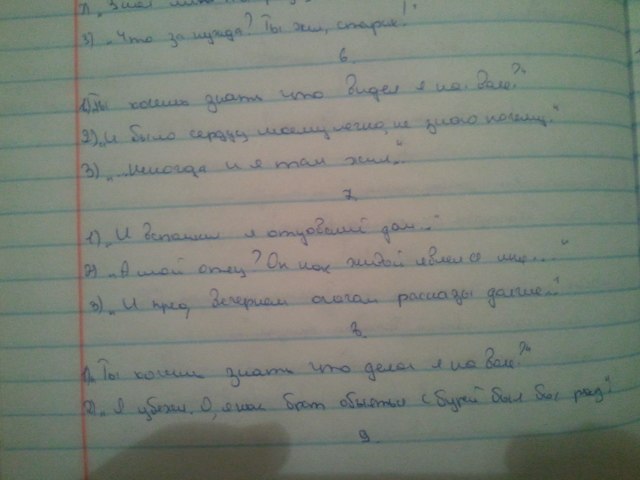 3) „Что за нужда? Ты жил, старик!"
6
1) „Ты хочешь знать что видел я на воле?"
2) „И было сердцу моему легко, не знаю почему."
3) „...Некогда и я там жил..."
7
1) „И вспомнил я отцовский дом..."
2) „А мой отец? Он как живой явлелся мне...."
3) „И пред вечерним очагом рассказы долгие..."
8
1) „Ты хочешь знать что делал я на воле?"
2) „Я убежал. О, я как брат обняться с бурей был бы рад"
9